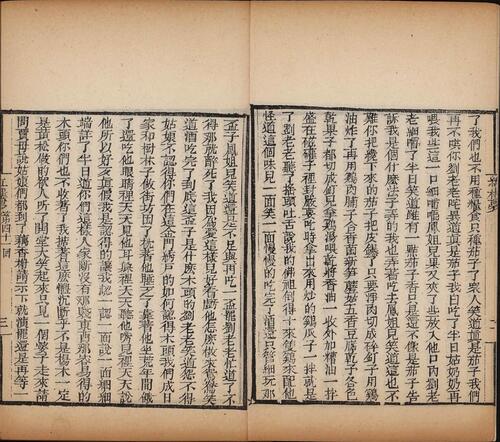 了我們也不用種糧食只種茄子了衆人笑道眞是茄子
再不哄你劉老老咤異道眞是茄子我白吃了半日姑奶奶再
喂我些這一口細嚼嚼鳳姐兒果又夾了些放入他口內劉老
老細嚼了半日笑道雖有一點茄子香只是還不像是茄子告
訴我是個什麽法子弄的我也弄着吃去鳳姐兒笑道這也不
難你把纔下來的茄子把皮刨了只要淨肉切成碎釘子用鷄
油炸了再用鷄肉脯子合香菌新筍蘑菇五香豆腐乾子各色
乾菓子都切成釘兒拿鷄湯煨乾將香油一收外加糟油一拌
盛在磁罐子裡封嚴要吃時拿出來用炒的鷄瓜子一拌就是
了劉老老聽了搖頭吐舌說我的佛祖倒得十來隻鷄來配他
怪道這個味兒一面笑一面慢慢的吃完了酒還只管細玩那
盃子鳳姐兒笑道還是不足興再吃一盃罷劉老老忙道了不
得那就醉死了我因爲愛這樣兒好看虧他怎麽做來着鴛鴦笑
道酒吃完了到底這盃子是什麽木頭的劉老老笑道怨不得
姑娘不認得你們在這金門綉戶的如何認得木頭我們成日
家和樹林子做街坊困了枕着他睡乏了靠着他坐荒年間餓
了還吃他眼睛裡天天見他耳朵裡天天聽他嘴兒裡天天說
他所以好歹眞假我是認得的讓我認認一面說一面細細
端詳了半日道你們這樣人家斷沒有那賤東西那容易得的
木頭你們也不收着了我掂着這麽體沉斷乎不是楊木一定
是黃松做的衆人聽了鬨堂大笑起來只見一個婆子走來請
問賈母說姑娘們都到了藕香榭請示下就演罷還是再等一
紅樓夢 第四十一回 三